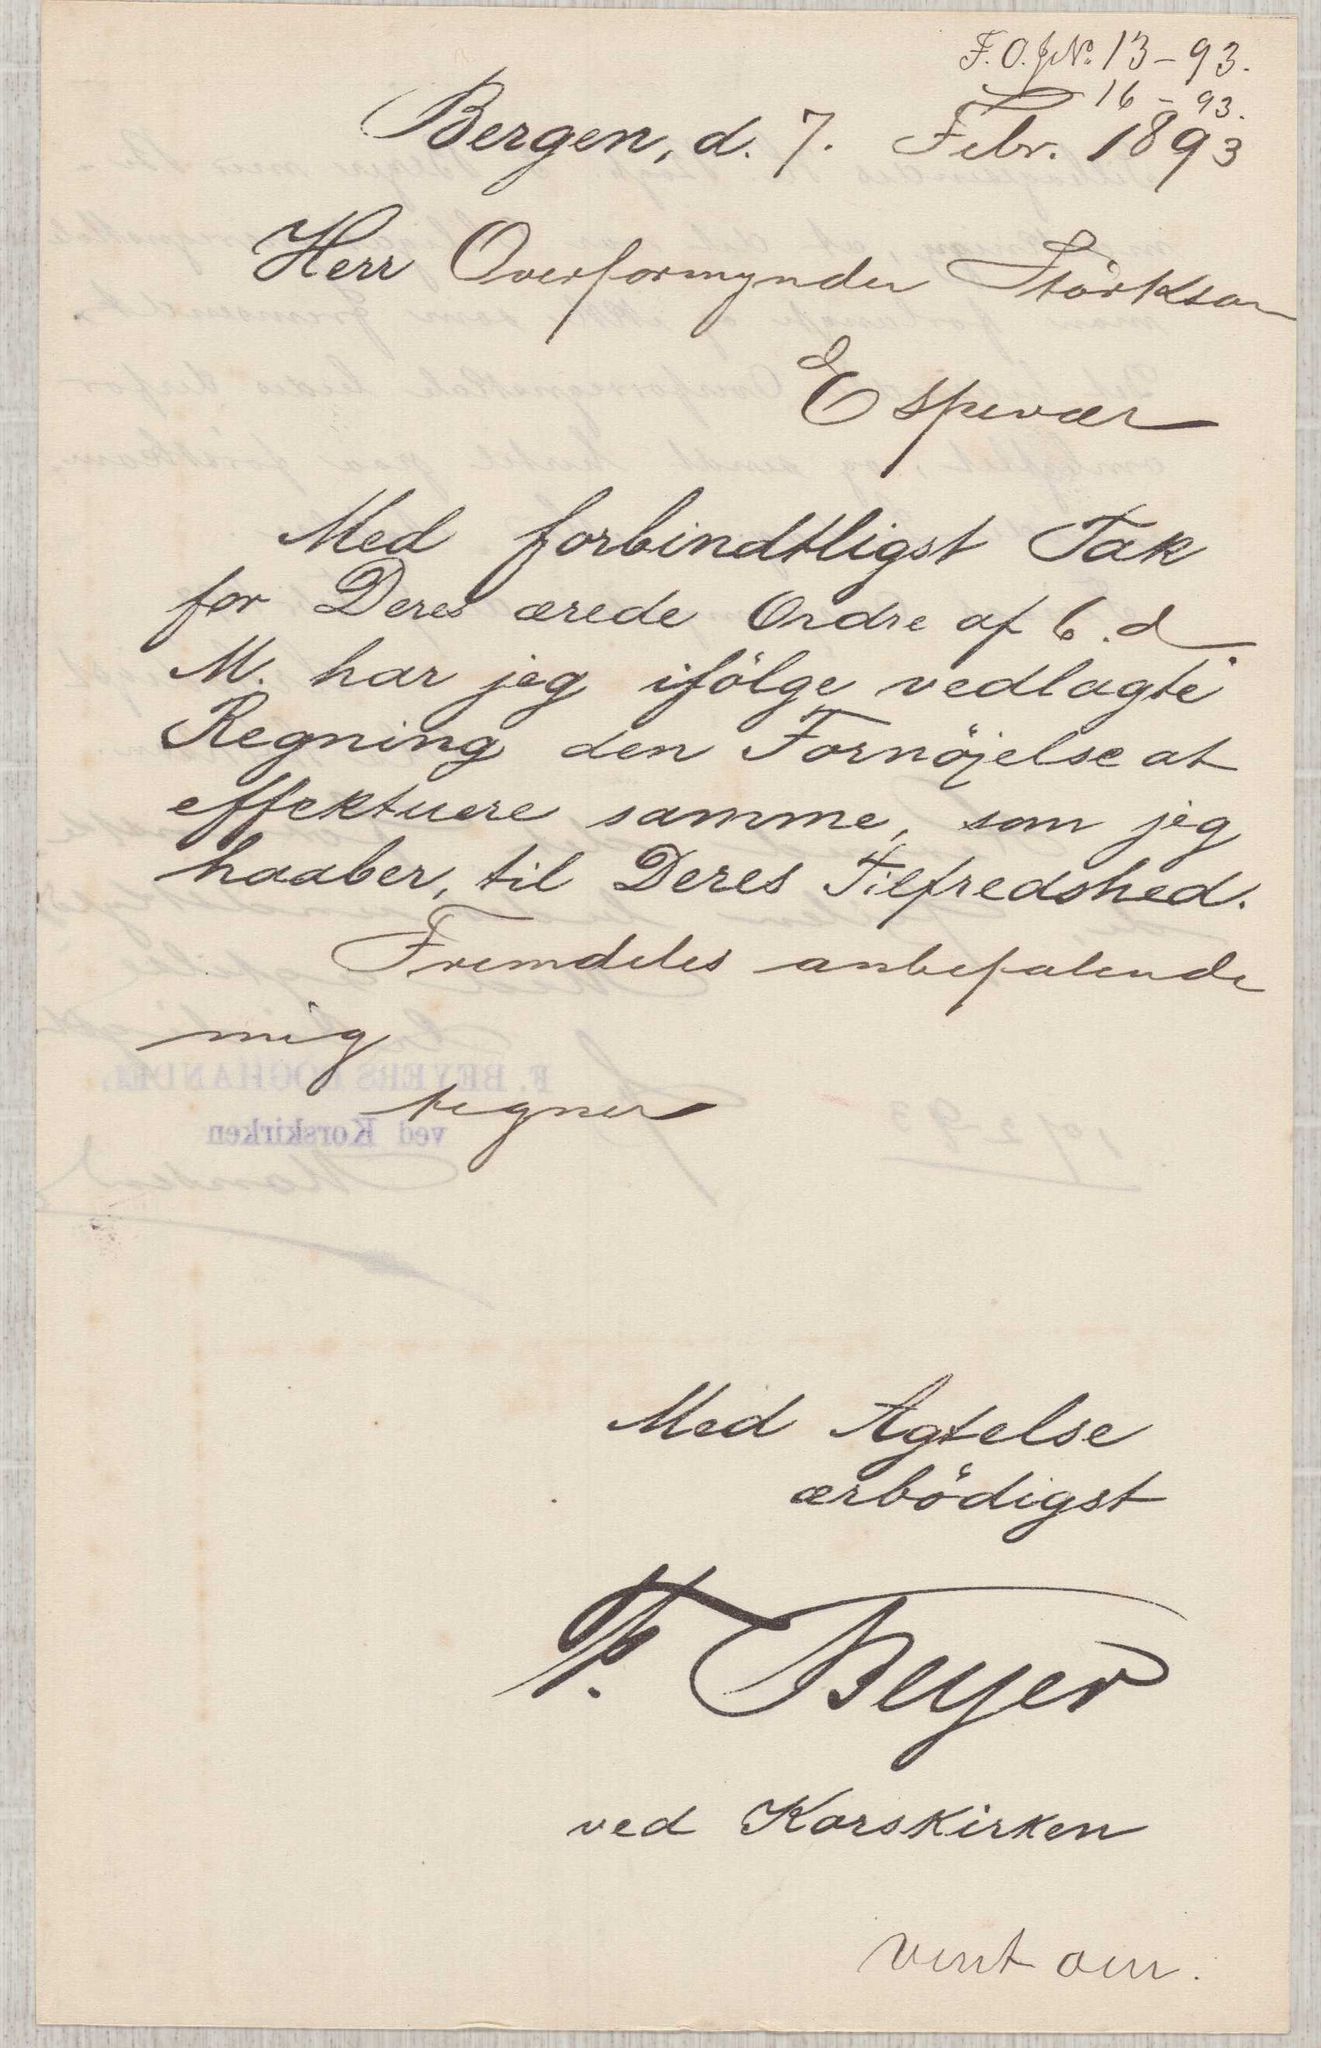 F. O. J№ 13-93.
16-93.
Bergen, d. 7. Febr. 1893
Herr Overformynder Störksen
Espevær
Med forbindtligst Tak
for Deres ærede Ordre af 6. d
M. har jeg ifölge vedlagte
Regning den Fornöjelse at
effektuere samme, som jeg
haaber, til Deres Tilfredshed.
Fremdeles anbefalende
mig
tegner
F. BEYERS BOGHANDEL
ved Korskirken
Med Agtelse
ærbödigst
F. Beyer
ved Korskirken
vent om.